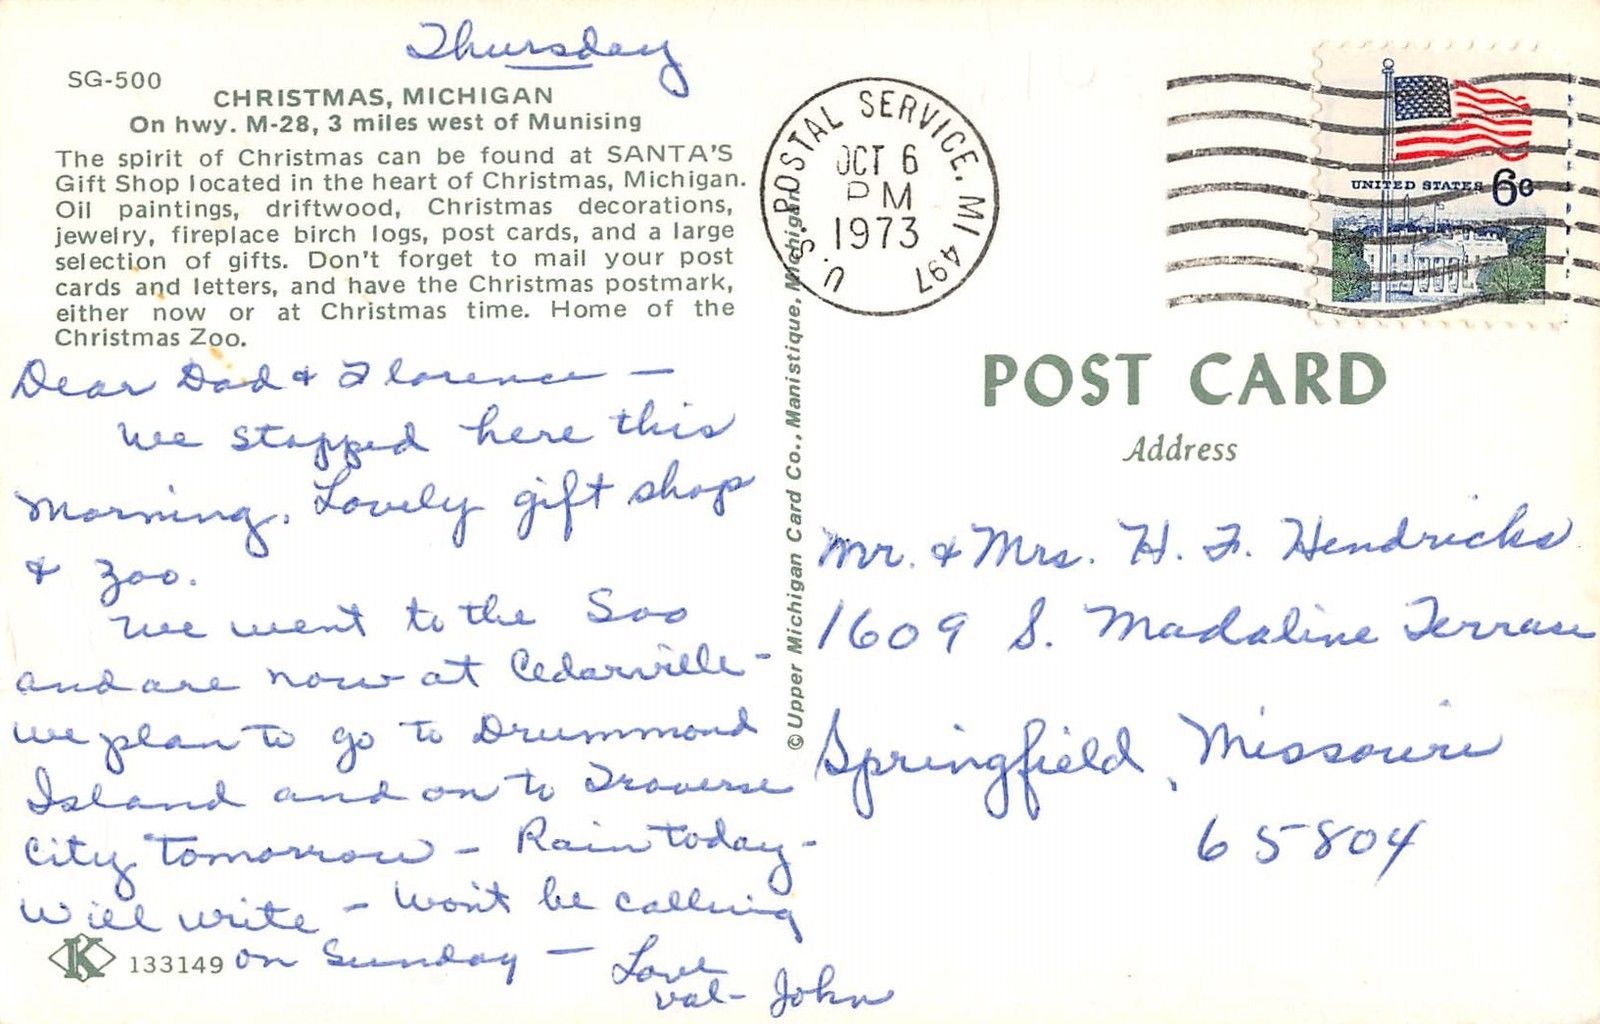 Thursday
SG-500
CHRISTMAS, MICHIGAN
On hwy. M-28, 3 miles west of Munising
The spirit of Christmas can be found at SANTA'S
Gift Shop located in the heart of Christmas, Michigan.
Oil paintings, driftwood, Christmas decorations,
jewelry, fireplace birch logs, post cards, and a large
selection of gifts. Don't forget to mail your post
cards and letters, and have the Christmas postmark,
either now or at Christmas time. Home of the
Christmas Zoo.
Dear Dad & Florence —
We stopped here this
morning. Lovely gift shop
& zoo.
We went to the Soo
and are now at Cedarville -
We plan to go to Drummond
Island and on to Traverse
City tomorrow - Rain today -
Will write - Won't be calling
on Sunday — Love
Val - John
K 133149
© Upper Michigan Card Co., Manistique, Michigan
U.S. POSTAL SERVICE, MI 497
OCT 6
PM
1973
UNITED STATES 6c
POST CARD
Address
Mr. & Mrs. H. F. Hendricks
1609 S. Madaline Terrace
Springfield, Missouri
65804